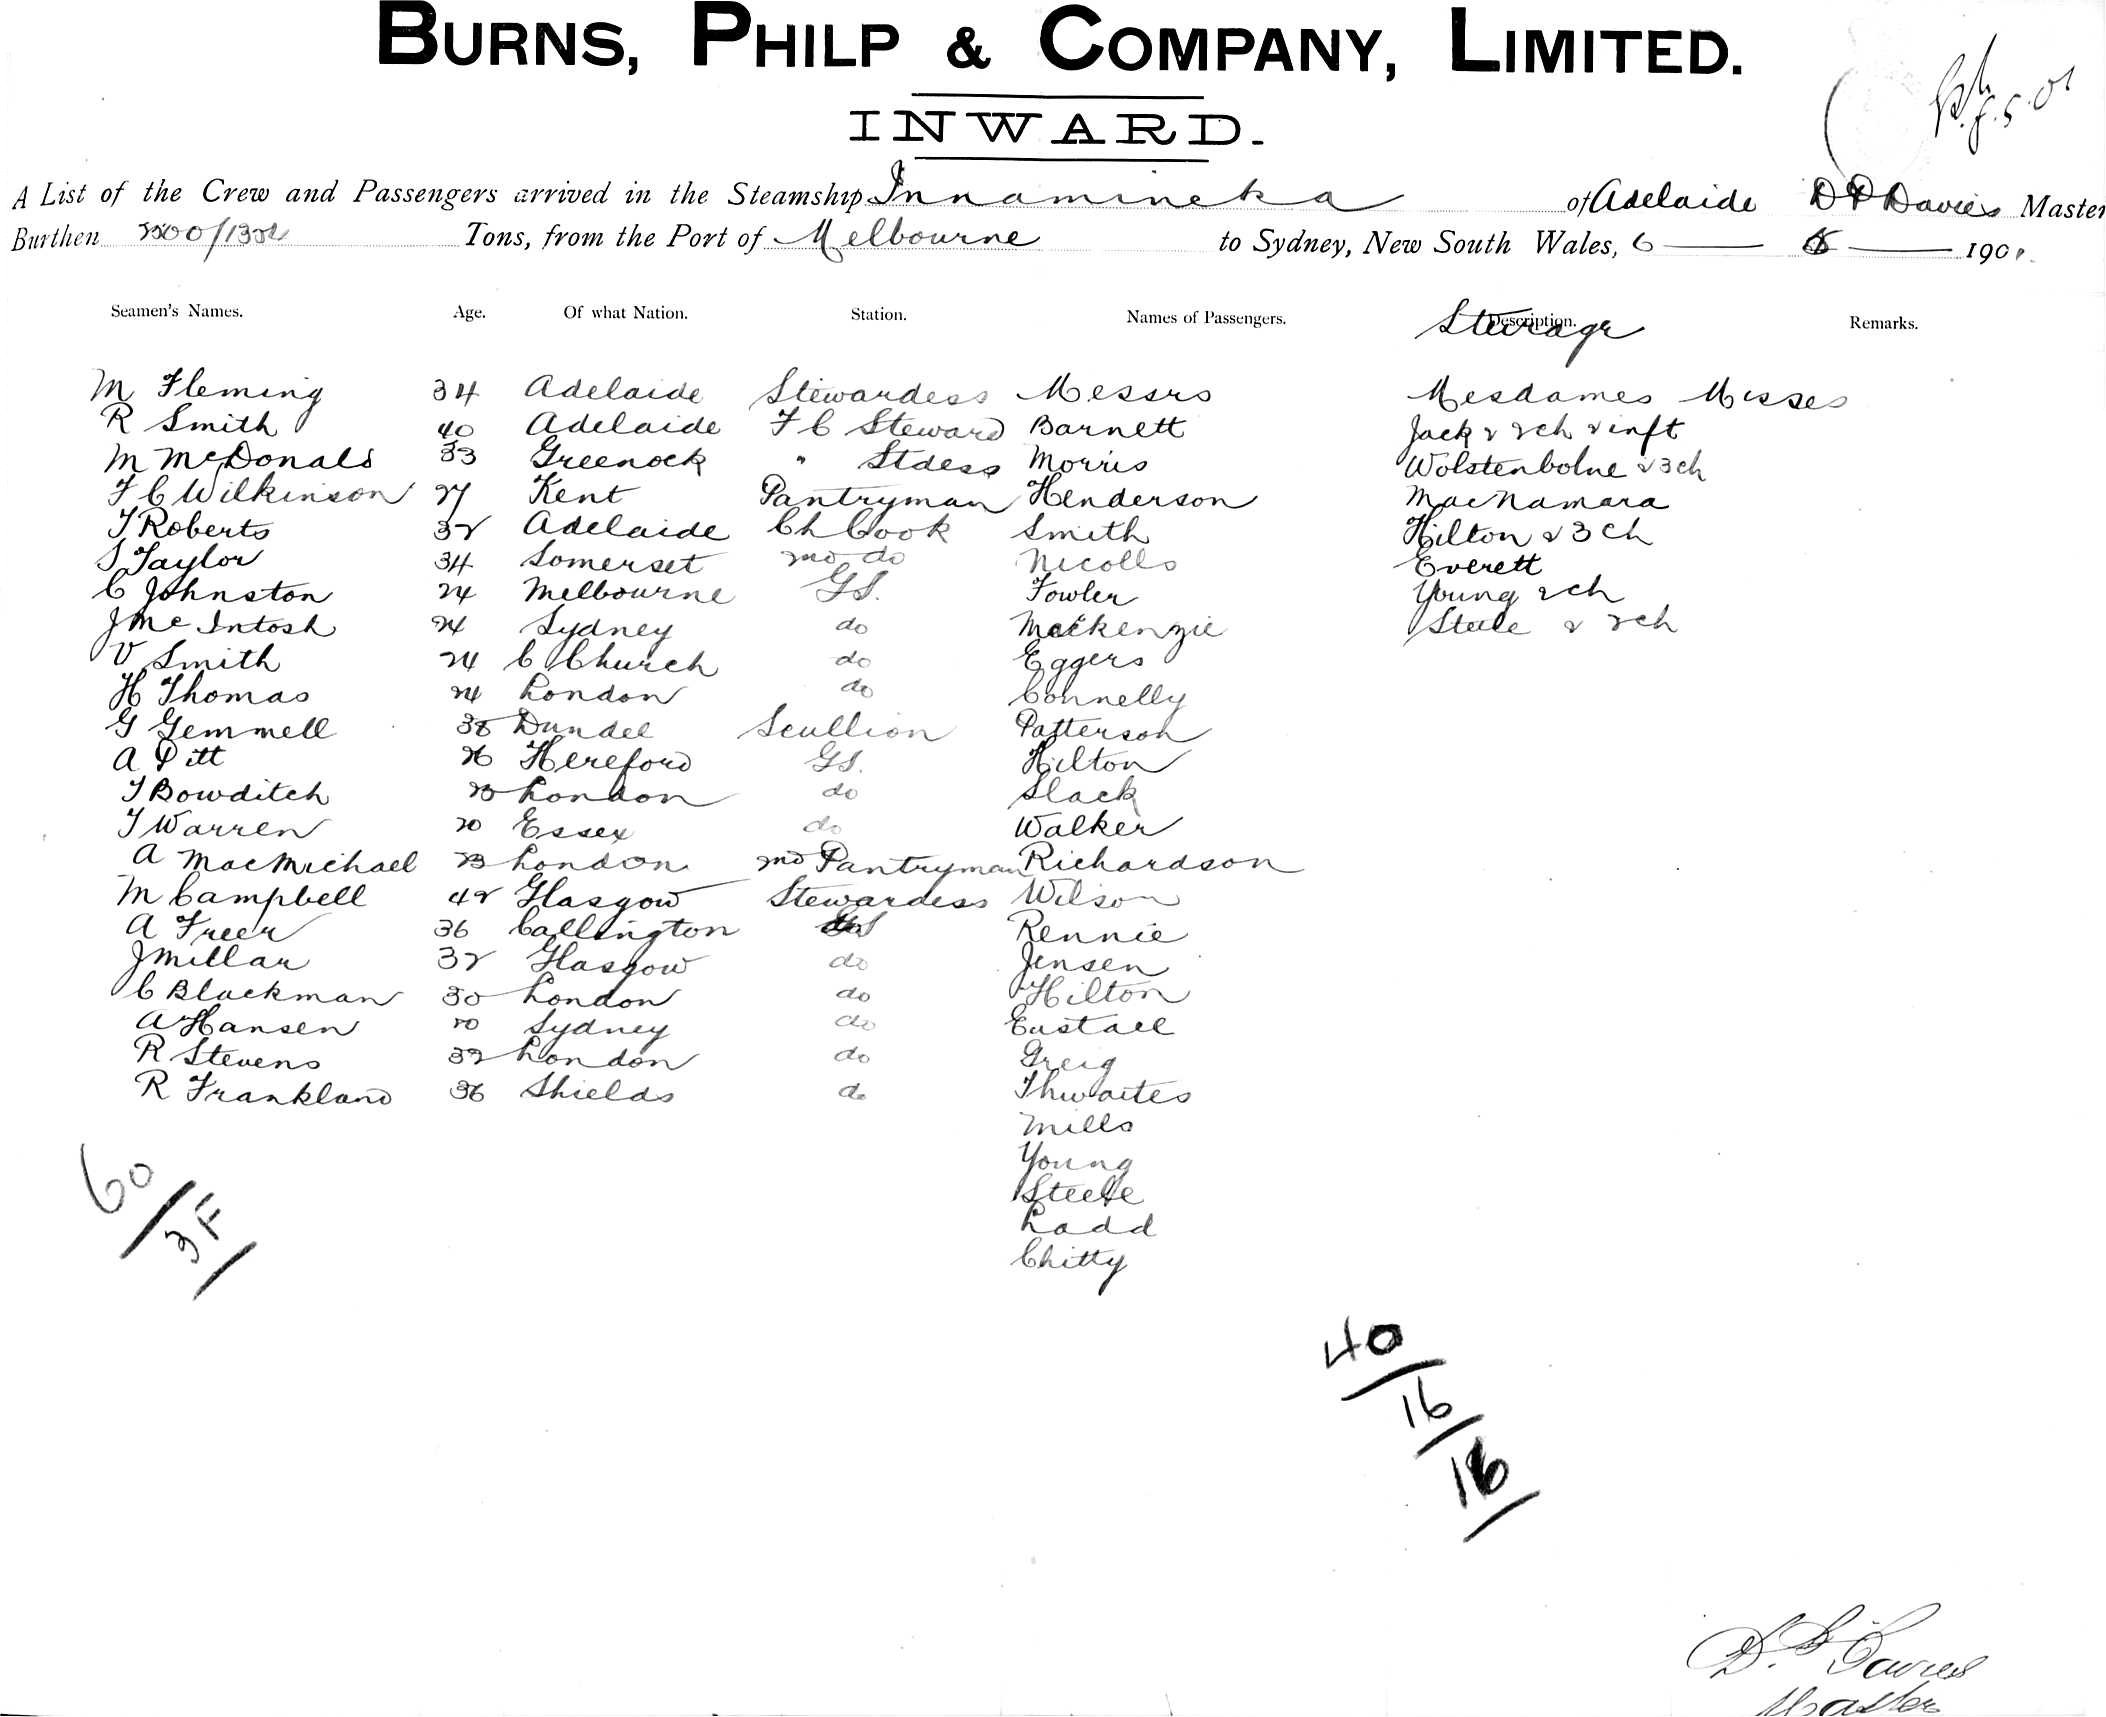 BURNS, PHILP & COMPANY, LIMITED.
INWARD.
A List of the Crew and Passengers arrived in the Steamship Innamincka of Adelaide D P Davies Master
Burthen Tons, from the Port of Melbourne to Sydney, New South Wales, 6 1901
Seamen's Names. Age. Of what Nation. Station. Names of Passengers. Description. Remarks.
Steerage
M Fleming 34 Adelaide Stewardess Messrs Mesdames Misses
R Smith 40 Adelaide F C Steward Barnett Jack & 2ch & inft
M McDonald 33 Greenock " Stdess Morris Wolstenholme & 3ch
F C Wilkinson 27 Kent Pantryman Henderson MacNamara
T Roberts 32 Adelaide Ch Cook Smith Hilton & 3 ch
S Taylor 34 Somerset 2nd do Nicolls Everett
C Johnston 24 Melbourne GS. Fowler Young 2ch
J McIntosh 24 Sydney do Mackenzie Steele & 2ch
V Smith 24 C Church do Eggers
H Thomas 24 London do Connelly
G Gemmell 38 Dundee Scullion Patterson
A Pitt 26 Hereford GS. Hilton
T Bowditch 23 London do Slack
T Warren 20 Essex do Walker
A MacMichael 23 London 2nd Pantryman Richardson
M Campbell 42 Glasgow Stewardess Wilson
A Freer 36 Callington GS Rennie
J Millar 32 Glasgow do Jensen
C Blackman 30 London do Hilton
A Hansen 20 Sydney do Eustace
R Stevens 32 London do Greig
R Frankland 36 Shields do Thwaites
Mills
Young
Steele
Ladd
Chitty
60
3F
40
16
16
D. P Davies
Master